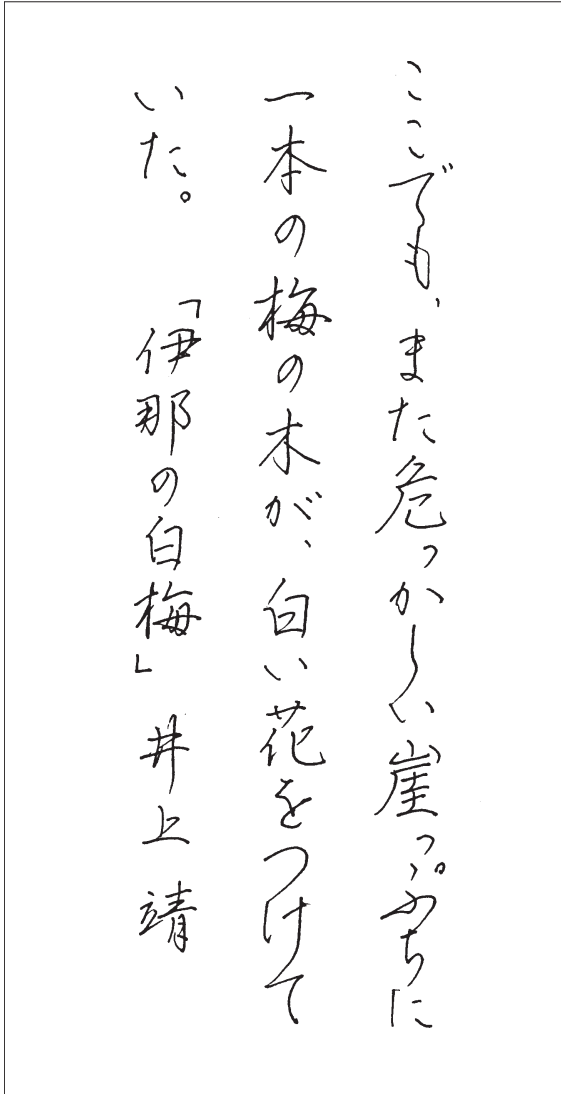 ここでも、また危っかしい崖っぷちに
一本の梅の木が、白い花をつけて
いた。　「伊那の白梅」　井上靖